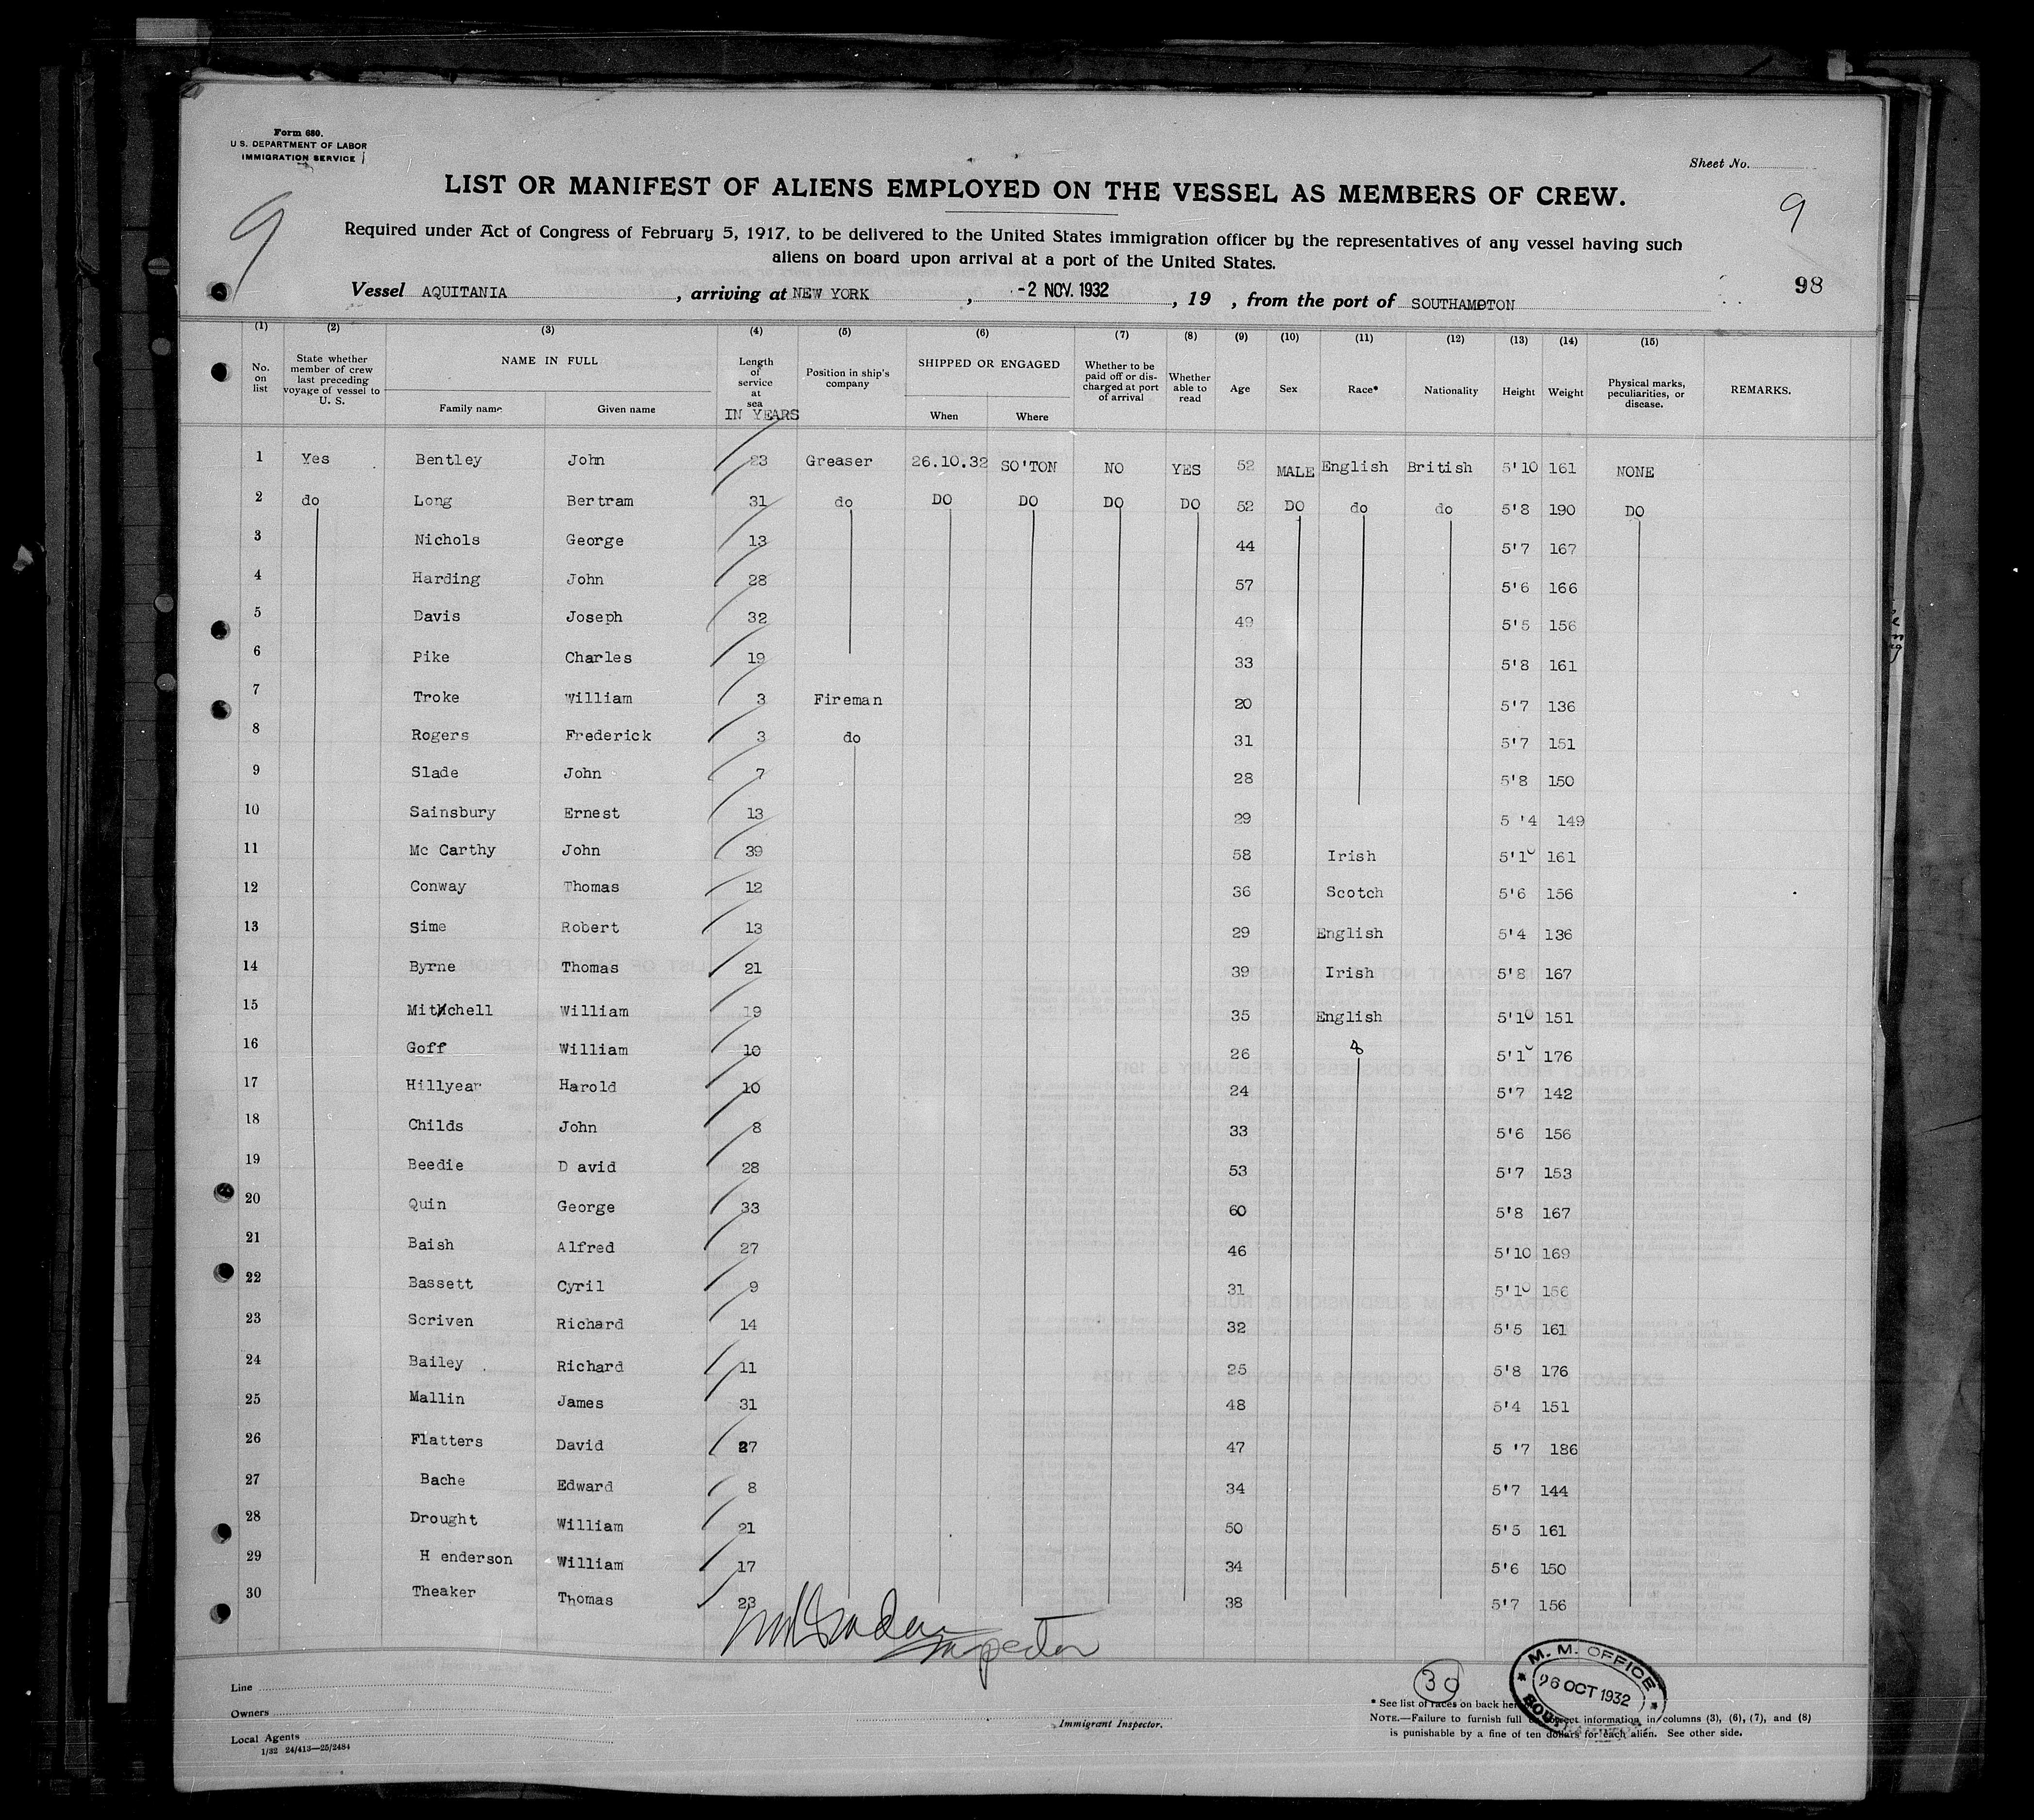 Form 680.
U. S. DEPARTMENT OF LABOR
IMMIGRATION SERVICE
Sheet No.
LIST OR MANIFEST OF ALIENS EMPLOYED ON THE VESSEL AS MEMBERS OF CREW.
9 9
Required under Act of Congress of February 5, 1917, to be delivered to the United States immigration officer by the representatives of any vessel having such
aliens on board upon arrival at a port of the United States.
98
Vessel AQUITANIA, arriving at NEW YORK, -2 NOV. 1932, 19 , from the port of SOUTHAMPTON
(1) (2) (3) (4) (5) (6) (7) (8) (9) (10) (11) (12) (13) (14) (15)
No. on list | State whether member of crew last preceding voyage of vessel to U. S. | NAME IN FULL Family name Given name | Length of service at sea IN YEARS | Position in ship's company | SHIPPED OR ENGAGED When Where | Whether to be paid off or discharged at port of arrival | Whether able to read | Age | Sex | Race* | Nationality | Height | Weight | Physical marks, peculiarities, or disease. | REMARKS.
1 Yes Bentley John 23 Greaser 26.10.32 SO'TON NO YES 52 MALE English British 5'10 161 NONE
2 do Long Bertram 31 do DO DO DO DO 52 DO do do 5'8 190 DO
3 Nichols George 13 44 5'7 167
4 Harding John 28 57 5'6 166
5 Davis Joseph 32 49 5'5 156
6 Pike Charles 19 33 5'8 161
7 Troke William 3 Fireman 20 5'7 136
8 Rogers Frederick 3 do 31 5'7 151
9 Slade John 7 28 5'8 150
10 Sainsbury Ernest 13 29 5 '4 149
11 Mc Carthy John 39 58 Irish 5'10 161
12 Conway Thomas 12 36 Scotch 5'6 156
13 Sime Robert 13 29 English 5'4 136
14 Byrne Thomas 21 39 Irish 5'8 167
15 Mitchell William 19 35 English 5'10 151
16 Goff William 10 26 5'10 176
17 Hillyear Harold 10 24 5'7 142
18 Childs John 8 33 5'6 156
19 Beedie D avid 28 53 5'7 153
20 Quin George 33 60 5'8 167
21 Baish Alfred 27 46 5'10 169
22 Bassett Cyril 9 31 5'10 156
23 Scriven Richard 14 32 5'5 161
24 Bailey Richard 11 25 5'8 176
25 Mallin James 31 48 5'4 151
26 Flatters David 27 47 5 '7 186
27 Bache Edward 8 34 5'7 144
28 Drought William 21 50 5'5 161
29 H enderson William 17 34 5'6 150
30 Theaker Thomas 23 38 5'7 156
Inspector
30
M. M. OFFICE
26 OCT 1932
Line
Owners
Local Agents
1/32 24/413—25/2484
Immigrant Inspector.
* See list of races on back
NOTE.—Failure to furnish full or correct information in columns (3), (6), (7), and (8)
is punishable by a fine of ten dollars for each alien. See other side.